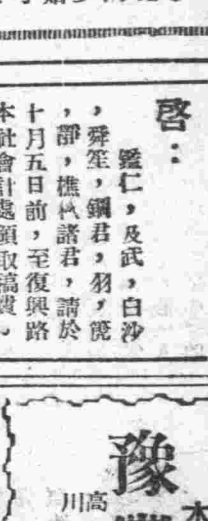 啓：
鑑仁，及武，白沙
，舜笙，鋼君，羽，篪
，郚，樵秋諸君，請於
十月五日前，至復興路
本社會計處領取稿費。
豫
高
川
本